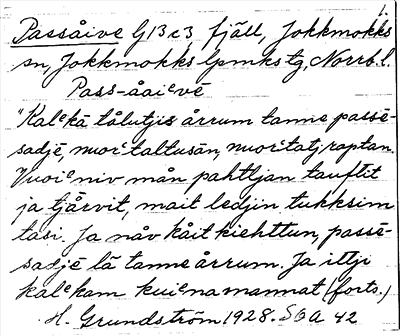 1.
Passåive G13c3 fjäll, Jokkmokks
sn, Jokkmokks lpmks tg, Norrb. l.
Pass-åaiᵉvē
"Kalᵉkā tålutjis årrum tanne passē-
sadjē, nuorᵗtaltusān, nuorᵗtatj raptan.
Vuoiᵉniv mån pahtljan tauftit
ja tjårvit, mait ledjin tukksim
tasi. Ja nåv kåit kiehttun, passē-
sadjē lā tanne årrum. Ja ittji
kalᵉkam kuiᵉna mannat (forts.)
H. Grundström 1928. SOA 42